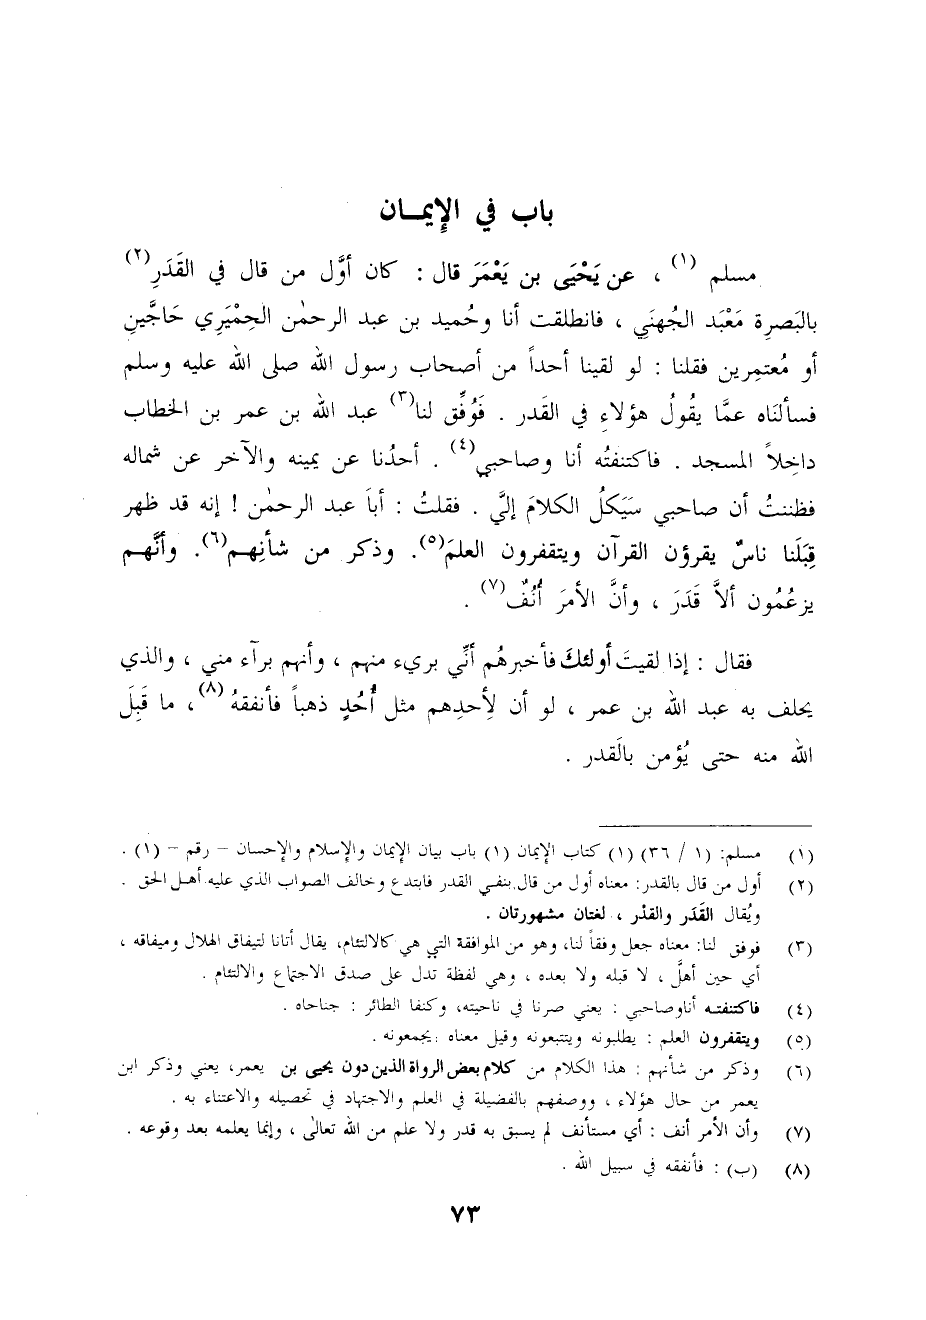 باب في الإيمـان
مسلم (١) ، عن يَحْيَى بن يَعْمَرَ قال : كان أوَّل من قال في القَدَرِ(٢)
بالبَصرِة مَعْبَد الجُهنَيِ ، فانطلقت أنا وحُميد بن عبد الرحمٰن الحِمْيَرِي حَاجَّينِ
أو مُعتمِرين فقلنا : لو لقينا أحداً من أصحاب رسول الله صلى الله عليه وسلم
فسألنَاه عمَّا يقُولُ هؤلاءِ في القَدر . فَوُفِّق لنا(٣) عبد الله بن عمر بن الخطاب
داخِلاً المسجد . فاكتنفتُه أنا وصاحبي(٤) . أحدُنا عن يمينه والآخر عن شماله
فظننتُ أن صاحبي سَيَكلُ الكلامَ إليَّ . فقلتُ : أباَ عبد الرحمٰن ! إنه قد ظهر
قِبَلَنا ناسٌ يقرؤن القرآن ويتقفرون العلمَ(٥). وذكر من شأنِهـم(٦). وأنَّهـم
يزعُمُون ألاَّ قَدَرَ ، وأنَّ الأمرَ أُنُفٌ(٧) .
فقال : إذا لقيتَ أولئكَ فأخبرهُم أنِّي بريء منهم ، وأنهم برآء مني ، والذي
يحلف به عبد الله بن عمر ، لو أن لِأحدِهم مثل أُحُدٍ ذهباً فأنفقهُ(٨)، ما قَبِلَ
الله منه حتى يُؤمن بالَقدر .
(١) مسلم: (١ / ٣٦) (١) كتاب الإيمان (١) باب بيان الإيمان والإسلام والإحسان – رقم – (١) .
(٢) أول من قال بالقدر: معناه أول من قال بنفـي القدر فابتدع وخالف الصواب الذي عليه أهـل الحق .
ويُقال القَدَر والقدْر ، لغتان مشهورتان .
(٣) فوفق لنا: معناه جعل وفقاً لنا، وهو من الموافقة التي هي كالالتئام، يقال أتانا لتيفاق الهلال وميفاقه ،
أي حين أهلَّ ، لا قبله ولا بعده ، وهي لفظة تدل على صدق الاجتماع والالتئام .
(٤) فاكتنفتـه أناوصاحبي : يعني صرنا في ناحيته، وكنفا الطائر : جناحاه .
(٥) ويتقفرون العلم : يطلبونه ويتتبعونه وقيل معناه يجمعونه .
(٦) وذكر من شأنهم : هذا الكلام من كلام بعض الرواة الذين دون يحيى بن يعمر، يعني وذكر ابن
يعمر من حال هؤلاء ، ووصفهم بالفضيلة في العلم والاجتهاد في تحصيله والاعتناء به .
(٧) وأن الأمر أنف : أي مستأنف لم يسبق به قدر ولا علم من الله تعالٰى ، وإنما يعلمه بعد وقوعه .
(٨) (ب) : فأنفقه في سبيل الله .
٧٣